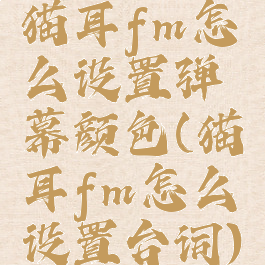 猫耳fm怎
么设置弹
幕颜色(猫
耳fm怎么
设置台词)